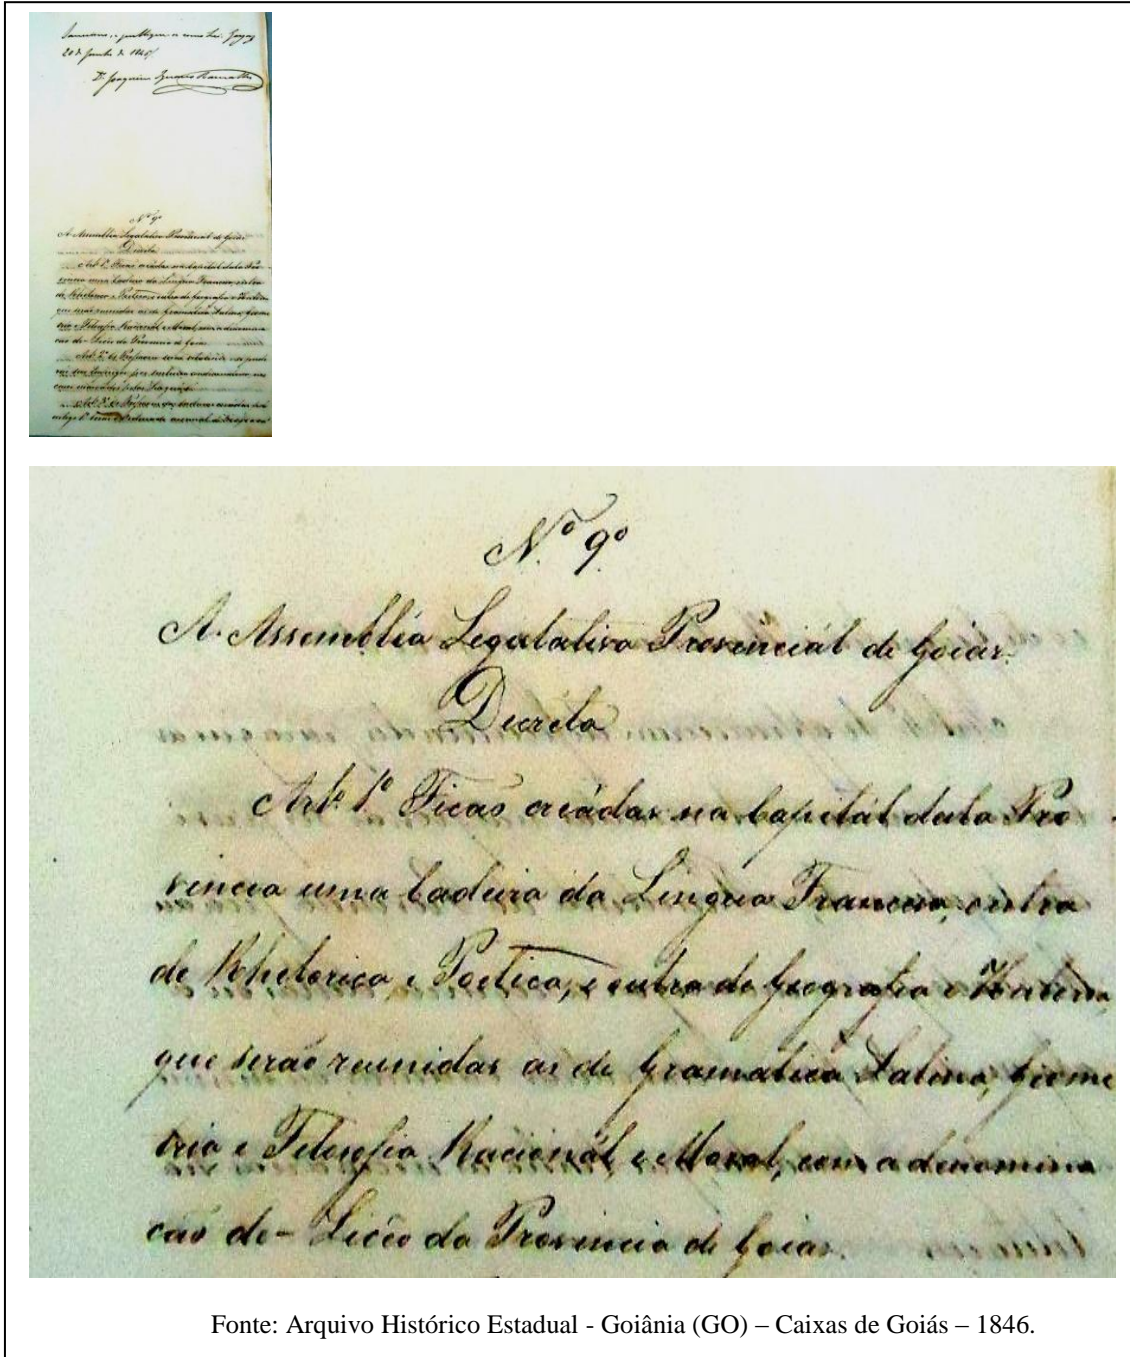 Sanccionei, e publique-se como Lei. Goyaz
20 de Junho de 1846
Dr. Joaquim Ignacio Ramalho
Nº 9º
A Assemblea Legislativa Provincial de Goiás
Decreta
Art. 1º Ficaõ creádas na Capitál desta Pro
vincia uma Cadeira da Lingua Franceza, outra
de Rhetorica e Poetica, e outra de Geografia e Historia
que seraõ reunidas as de Gramatica Latina, Geome
tria e Filosofia Racional e Moral, com a denomina
caõ de Liceo da Provincia de Goias
Art. 2º Os Professores
Art. 3º Os Professores das Cadeiras creadas
artigo 1º
Nº 9º
A Assemblea Legislativa Provinciál de Goiás.
Decreta
Art. 1º Ficaõ creádas na Capitál desta Pro
vincia uma Cadeira da Lingua Franceza, outra
de Rhetorica, e Poetica, e outra de Geografia e Historia,
que seraõ reunidas as de Gramatica Latina, Geome
tria e Filosofia Racionál, e Moral, com a denomina
caõ de - Licêo da Provincia de Goias.
Fonte: Arquivo Histórico Estadual - Goiânia (GO) – Caixas de Goiás – 1846.